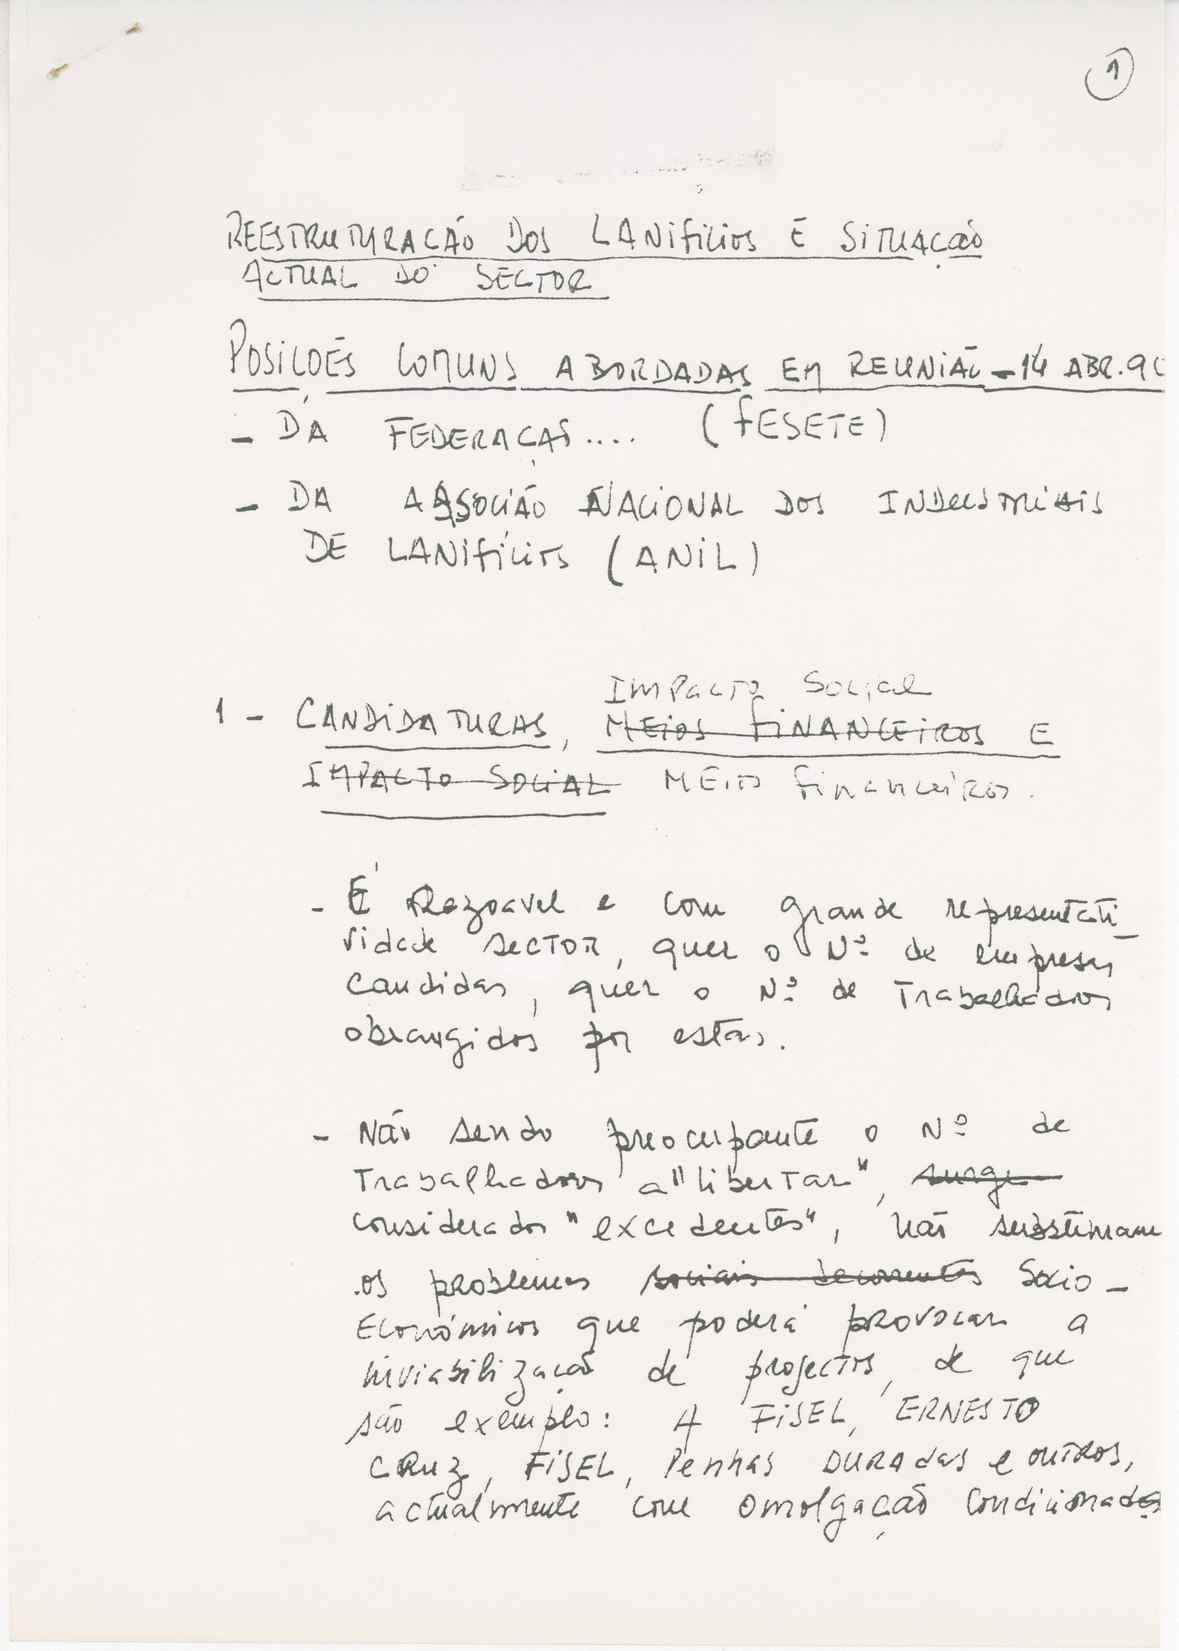 1
REESTRUTURAÇÃO DOS LANIFÍCIOS E SITUAÇÃO
ACTUAL DO SECTOR
POSIÇÕES COMUNS ABORDADAS EM REUNIÃO - 14 ABR.9
- DA FEDERAÇÃO.... (FESETE)
- DA ASSOCIÃO NACIONAL DOS INDUSTRIAIS
DE LANIFÍCIOS (ANIL)
Impacto Social
1 - CANDIDATURAS, MEIOS FINANCEIROS E
IMPACTO SOCIAL MEIOS financeiros.
- É Razoavel e com grande representati_
vidade SECTOR, quer o Nº de empresas
candidas, quer o Nº de Trabalhadores
abrangidos por estas.
- Não sendo preocupante o Nº de
Trabalhadores a "libertar", surge
considerados "excedentes", não substimam
os problemas sociais decorrentes Socio-
Económicos que poderá provocar a
inviabilização de projectos, de que
são exemplo: A FISEL, ERNESTO
CRUZ, FISEL, Penhas DURADAS e outros,
actualmente com omolgação condicionada